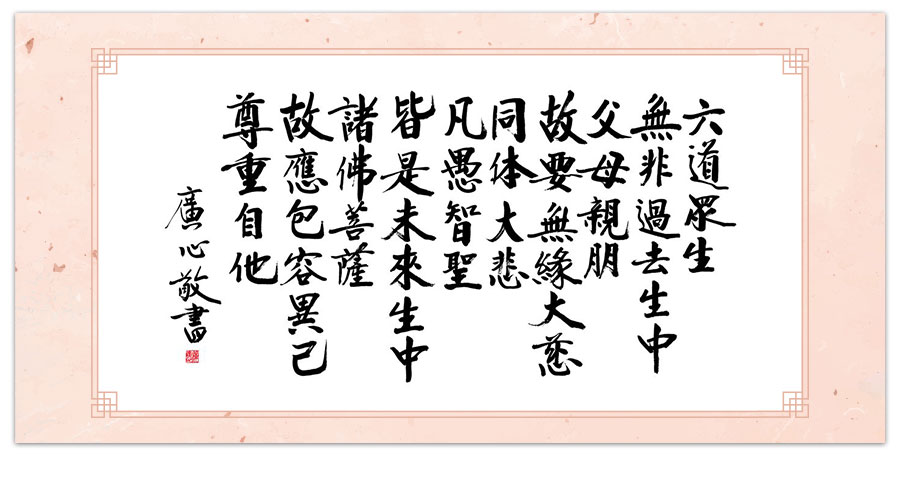 六道眾生
無非過去生中
父母親朋
故要無緣大慈
同体大悲
凡愚智聖
皆是未來生中
諸佛菩薩
故應包容異己
尊重自他
廣心敬書